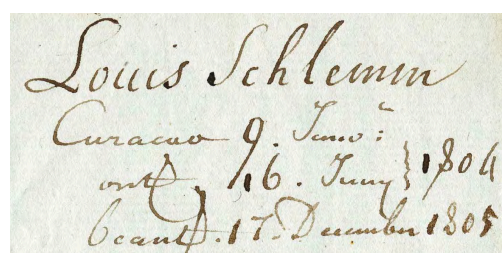 Louis Schlemm
Curacao 9. Juno:
ontf. 16. Juny } 1804
beantw. 17. December 1805